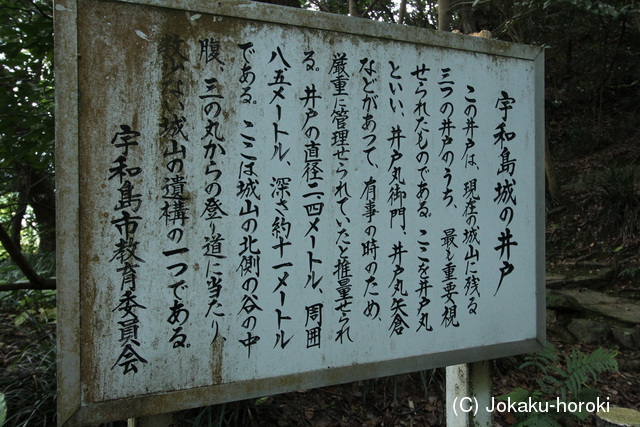 宇和島城の井戸
この井戸は、現在の城山に残る
三つの井戸のうち、最も重要視
せられたものである。ここを井戸丸
といい、井戸丸御門、井戸丸矢倉
などがあつて、有事の時のため、
厳重に管理せられていたと推量せられ
る。井戸の直径二.四メートル、周囲
八.五メートル、深さ約十一メートル
である。ここは城山の北側の谷の中
腹、三の丸からの登り道に当たり、
数少い、城山の遺構の一つである。
宇和島市教育委員会
(C) Jokaku-horoki